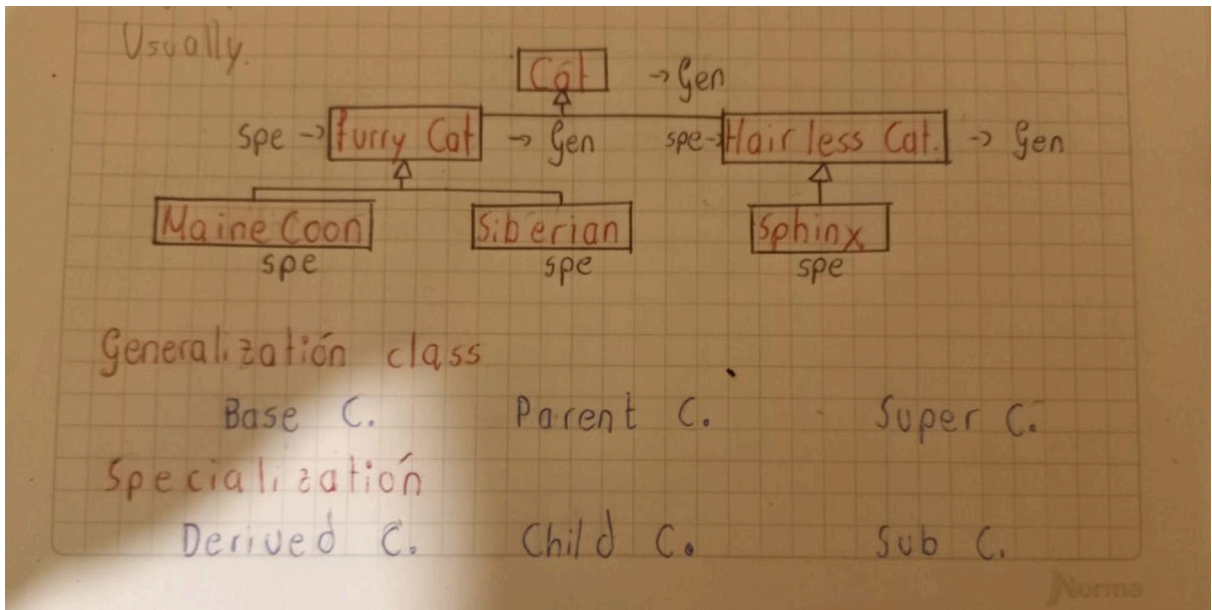 Usually.
Cat → Gen
spe → Furry Cat → Gen spe → Hairless Cat. → Gen
Maine Coon Siberian Sphinx
spe spe spe
Generalizatión class
Base C. Parent C. Super C.
Specializatión
Derived C. Child C. Sub C.
Norma